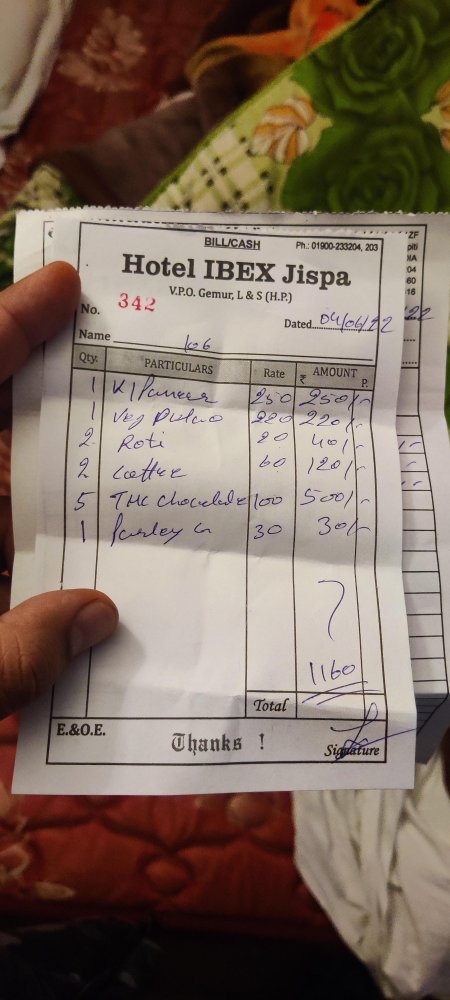 BILL/CASH Ph.: 01900-233204, 203
Hotel IBEX Jispa
V.P.O. Gemur, L & S (H.P.)
No. 342 Dated 04/06/22
Name 106
Qty. PARTICULARS Rate ₹ AMOUNT P.
1 K/Paneer 250 250/-
1 Veg Pulao 220 220/-
2 Roti 20 40/-
2 Coffee 60 120/-
5 THC Chocolate 100 500/-
1 Parley G 30 30/-
1160
Total
E.&O.E.
Thanks !
Signature
ZF
piti
DIA
04
60
16
22